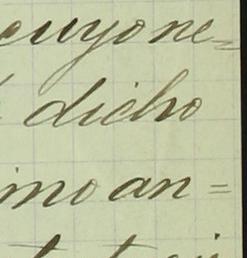 cuyo ne=
dicho
imo an=